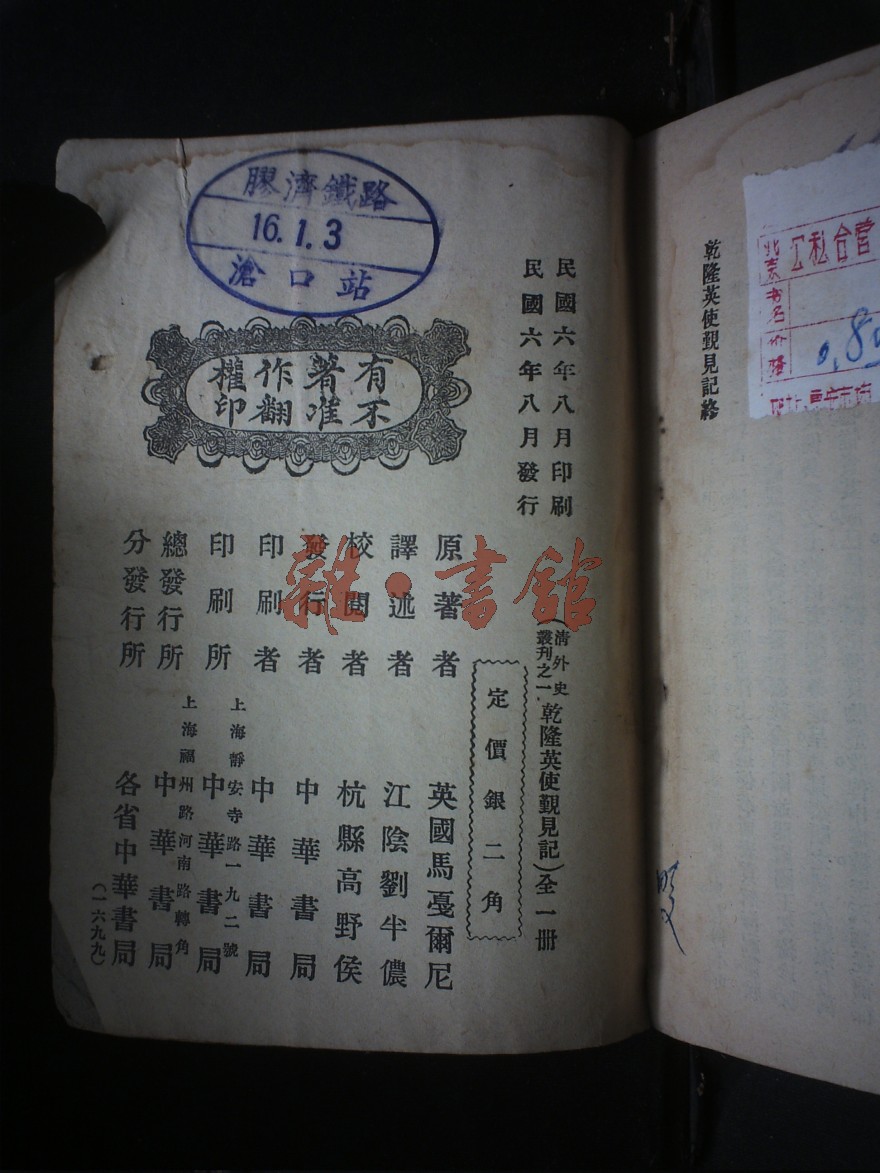 乾隆英使覲見記終
公私合营
北京
书名
价格
0.8
膠濟鐵路
16.1.3
滄口站
民國六年八月印刷
民國六年八月發行
有著作權
不准翻印
(清外史叢刊之一)乾隆英使覲見記)全一册
定價銀二角
原著者 英國馬戞爾尼
譯述者 江陰劉半儂
校閱者 杭縣高野侯
發行者 中華書局
印刷者 中華書局
上海靜安寺路一九二號
印刷所 中華書局
上海福州路河南路轉角
總發行所 中華書局
分發行所 各省中華書局
(一六九九)
雜·書館